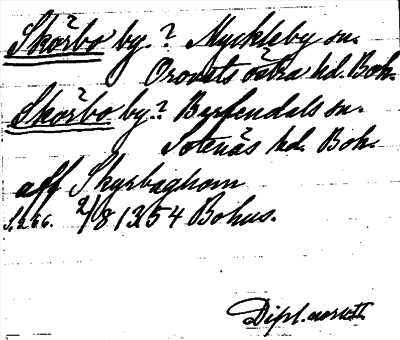 Skörbo by.? Myckleby sn.
Orousts östra hd. Boh.
Skörbo by? Bärfendals sn.
Sotenäs hd. Boh.
aff Skyrbaghom
S. 266. 2/8 1354 Bohus.
Dipl. norv. II.